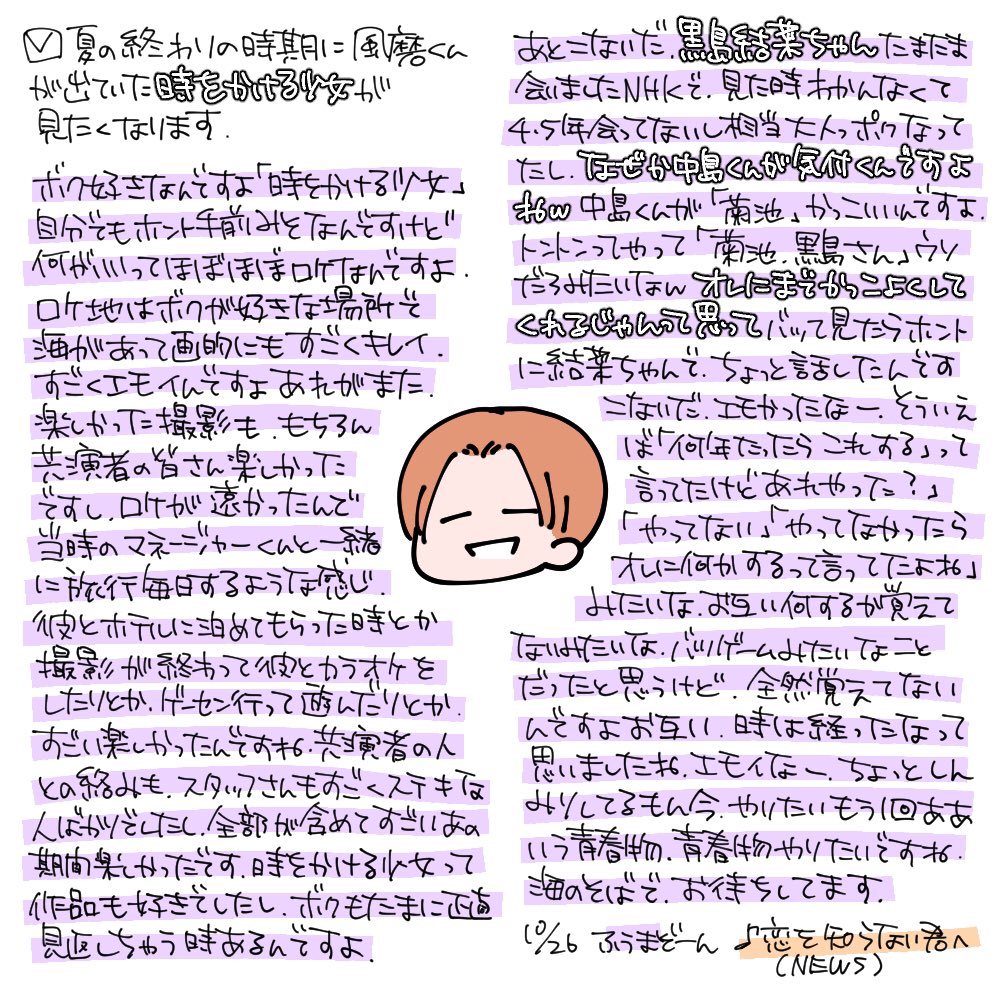 夏の終わりの時期に風磨くん
が出ていた時をかける少女が
見たくなります.
ボク好きなんですよ「時をかける少女」
自分でもホント手前みそなんですけど
何がいいってほぼほぼロケなんですよ.
ロケ地はボクが好きな場所で
海があって画的にもすごくキレイ.
すごくエモイんですよあれがまた.
楽しかった撮影も.もちろん
共演者の皆さん楽しかった
ですし.ロケが遠かったんで
当時のマネージャーくんと一緒
に旅行毎日するような感じ.
彼とホテルに泊めてもらった時とか
撮影が終わって彼とカラオケを
したりとか.ゲーセン行って遊んだりとか.
すごい楽しかったんですね.共演者の人
との絡みも.スタッフさんもすごくステキな
人ばかりでしたし.全部が含めてすごいあの
期間楽しかったです.時をかける少女って
作品も好きでしたし.ボクもたまに正直
見返しちゃう時あるんですよ.
あとこないだ.黒島結菜ちゃんたまたま
会いましたNHKで.見た時わかんなくて
4.5年会ってないし相当大人っポクなって
たし.なぜか中島くんが気付くんですよ
ねw中島くんが「菊池」かっこいいんですよ.
トントンってやって「菊池.黒島さん」ウソ
だろみたいなんオレにまでかっこよくして
くれるじゃんって思ってバッて見たらホント
に結菜ちゃんで.ちょっと話したんです
こないだ.エモかったなー.そういえ
ば「何年たったらこれする」って
言ってたけどあれやった?」
「やってない」「やってなかったら
オレに何かするって言ってたよね」
みたいな.お互い何するか覚えて
ないみたいな.バツゲームみたいなこと
だったと思うけど.全然覚えてない
んですよお互い.時は経ったなって
思いましたね.エモイなー.ちょっとしん
みりしてるもん今.やりたいもう1回ああ
いう青春物.青春物やりたいですね.
海のそばで.お待ちしてます.
10/26 ふうまぞーん ♪恋を知らない君へ
(NEWS)